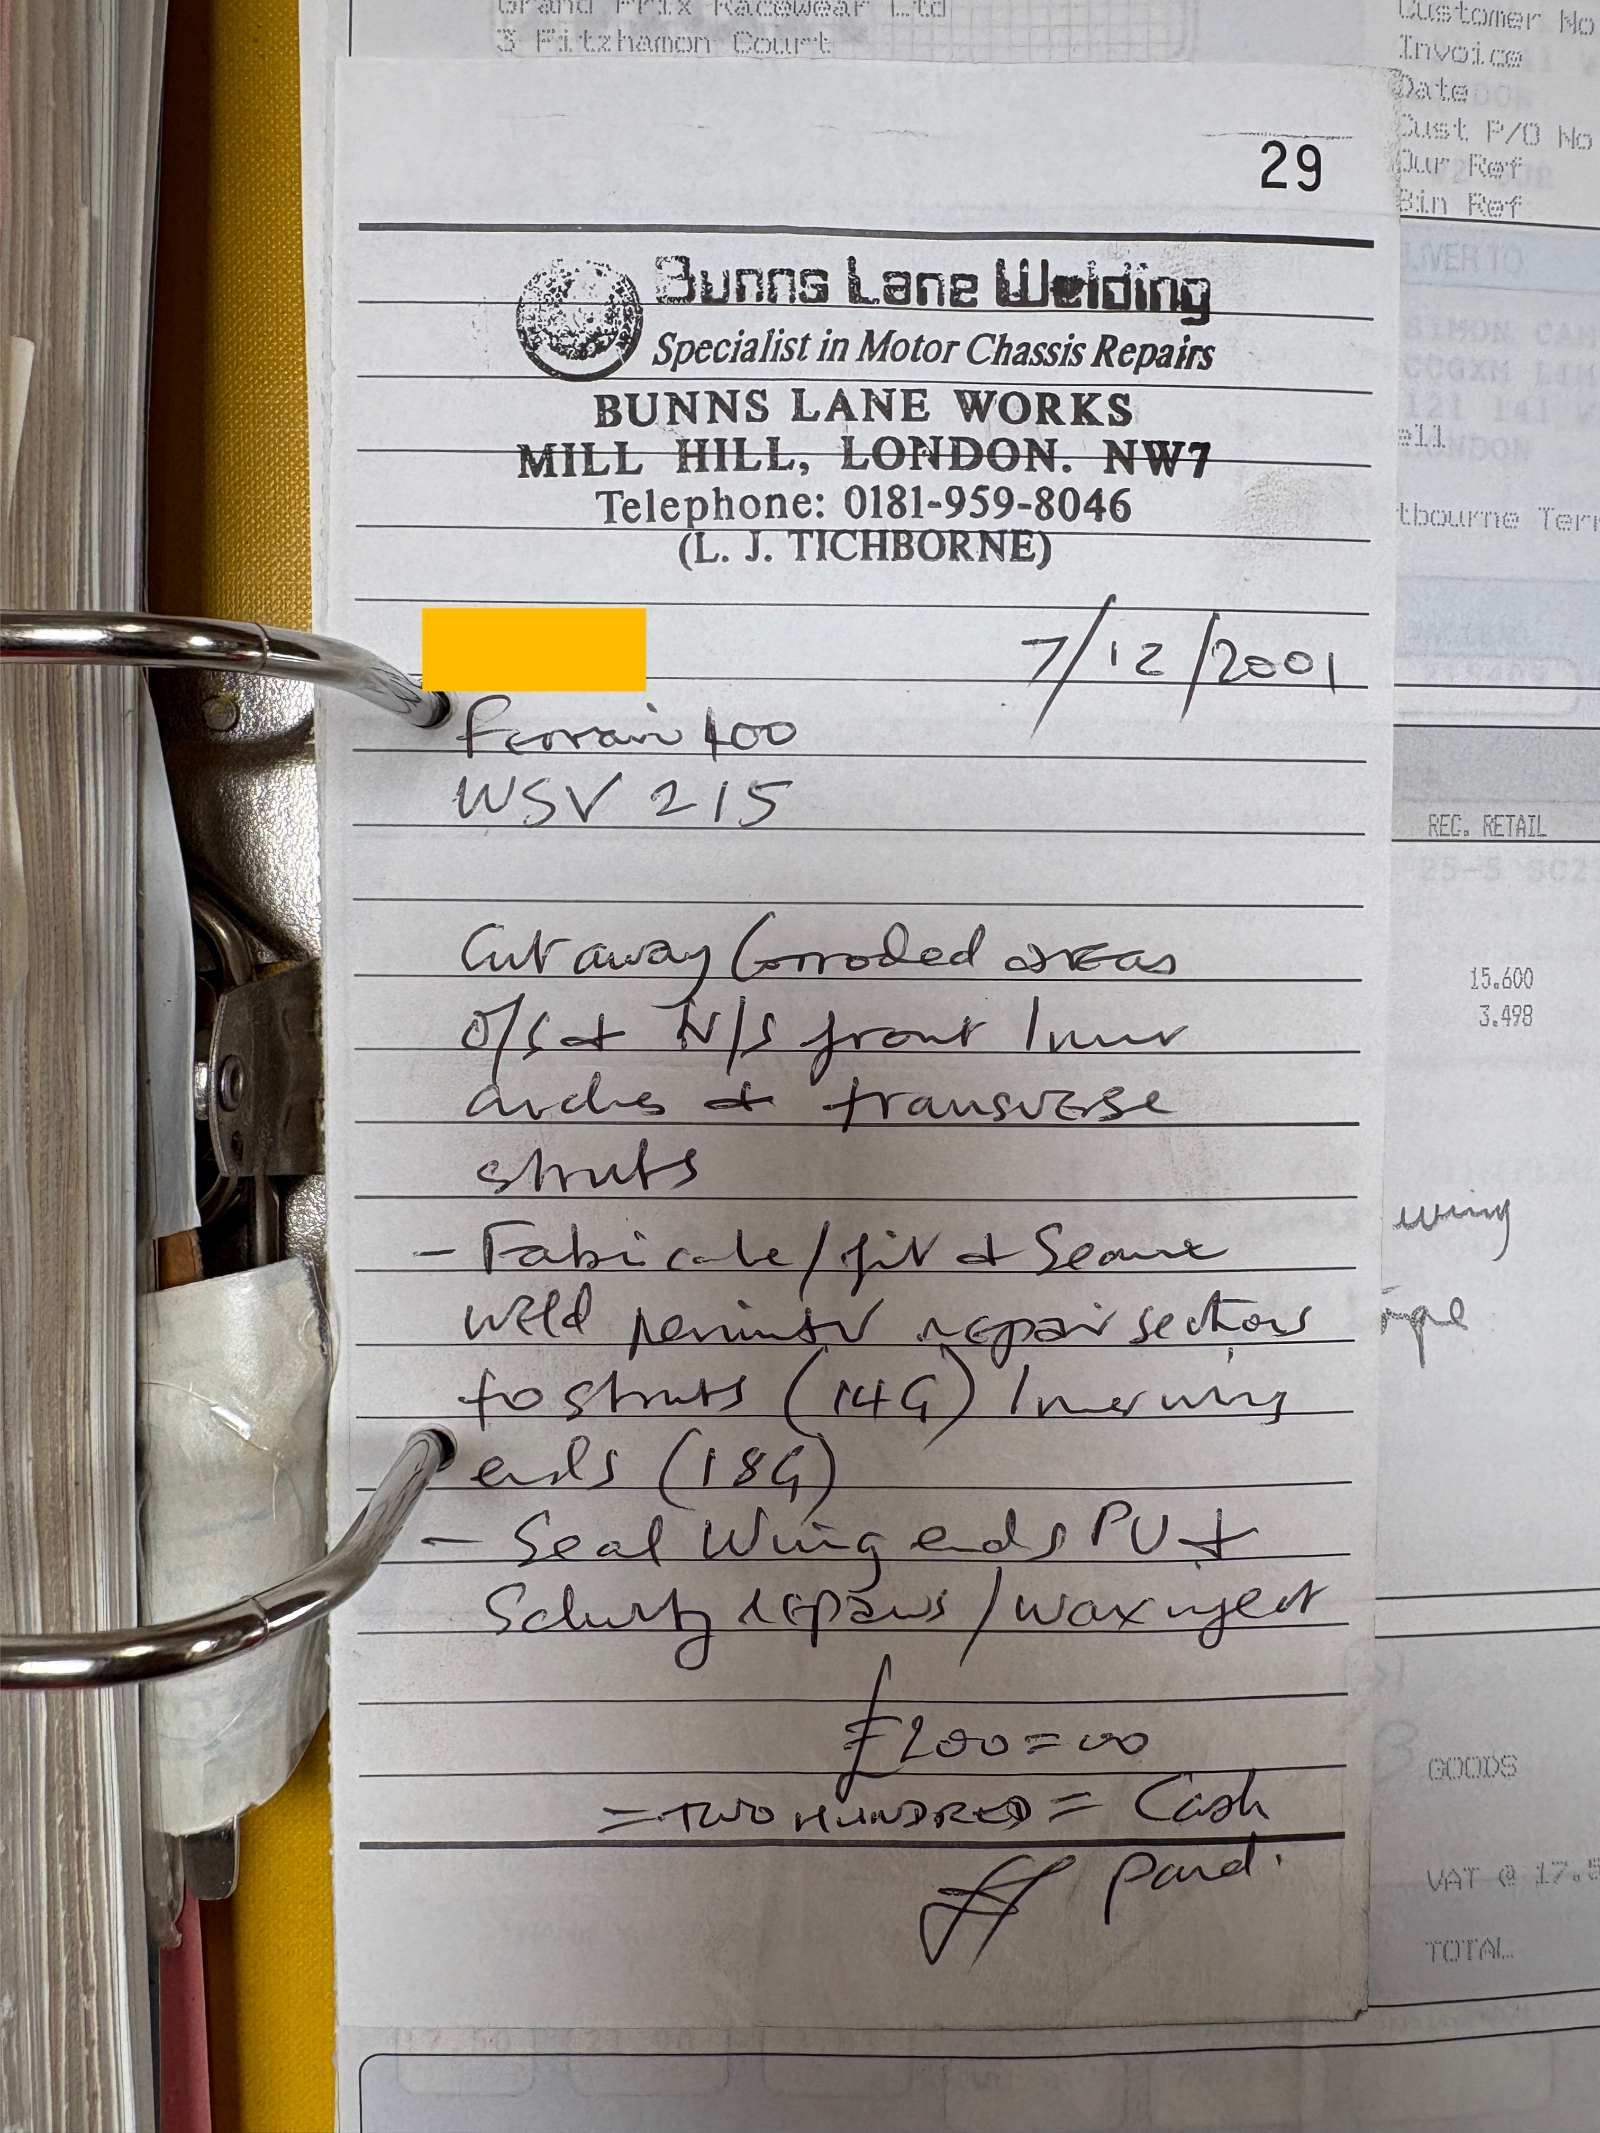 Grand Prix Racewear Ltd
3 Fitzhamon Court
Customer No
Invoice
Date
Cust P/O No
Our Ref
Bin Ref
LIVER TO
SIMON CAM
121 141 W
ell
LONDON
tbourne Terr
REC. RETAIL
25-5 SC2
15.600
3.498
wing
GOODS
VAT @ 17.5
TOTAL
29
Bunns Lane Welding
Specialist in Motor Chassis Repairs
BUNNS LANE WORKS
MILL HILL, LONDON. NW7
Telephone: 0181-959-8046
(L. J. TICHBORNE)
7/12/2001
Ferrari 400
WSV 215
Cut away Corroded areas
O/S & N/S front Inner
arches & transverse
struts
- Fabricate/fit & Seam
weld perimeter repair sections
to struts (14G) Inner wing
ends (18G)
- Seal Wing ends PU &
Schutz repairs / wax inject
£200=00
= TWO HUNDRED = Cash
Paid.